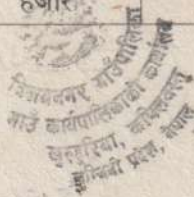 हजार
विजयनगर गाउँपालिका
गाउँ कार्यपालिकाको कार्यालय
खुरुरिया, कपिलवस्तु
लुम्बिनी प्रदेश, नेपाल